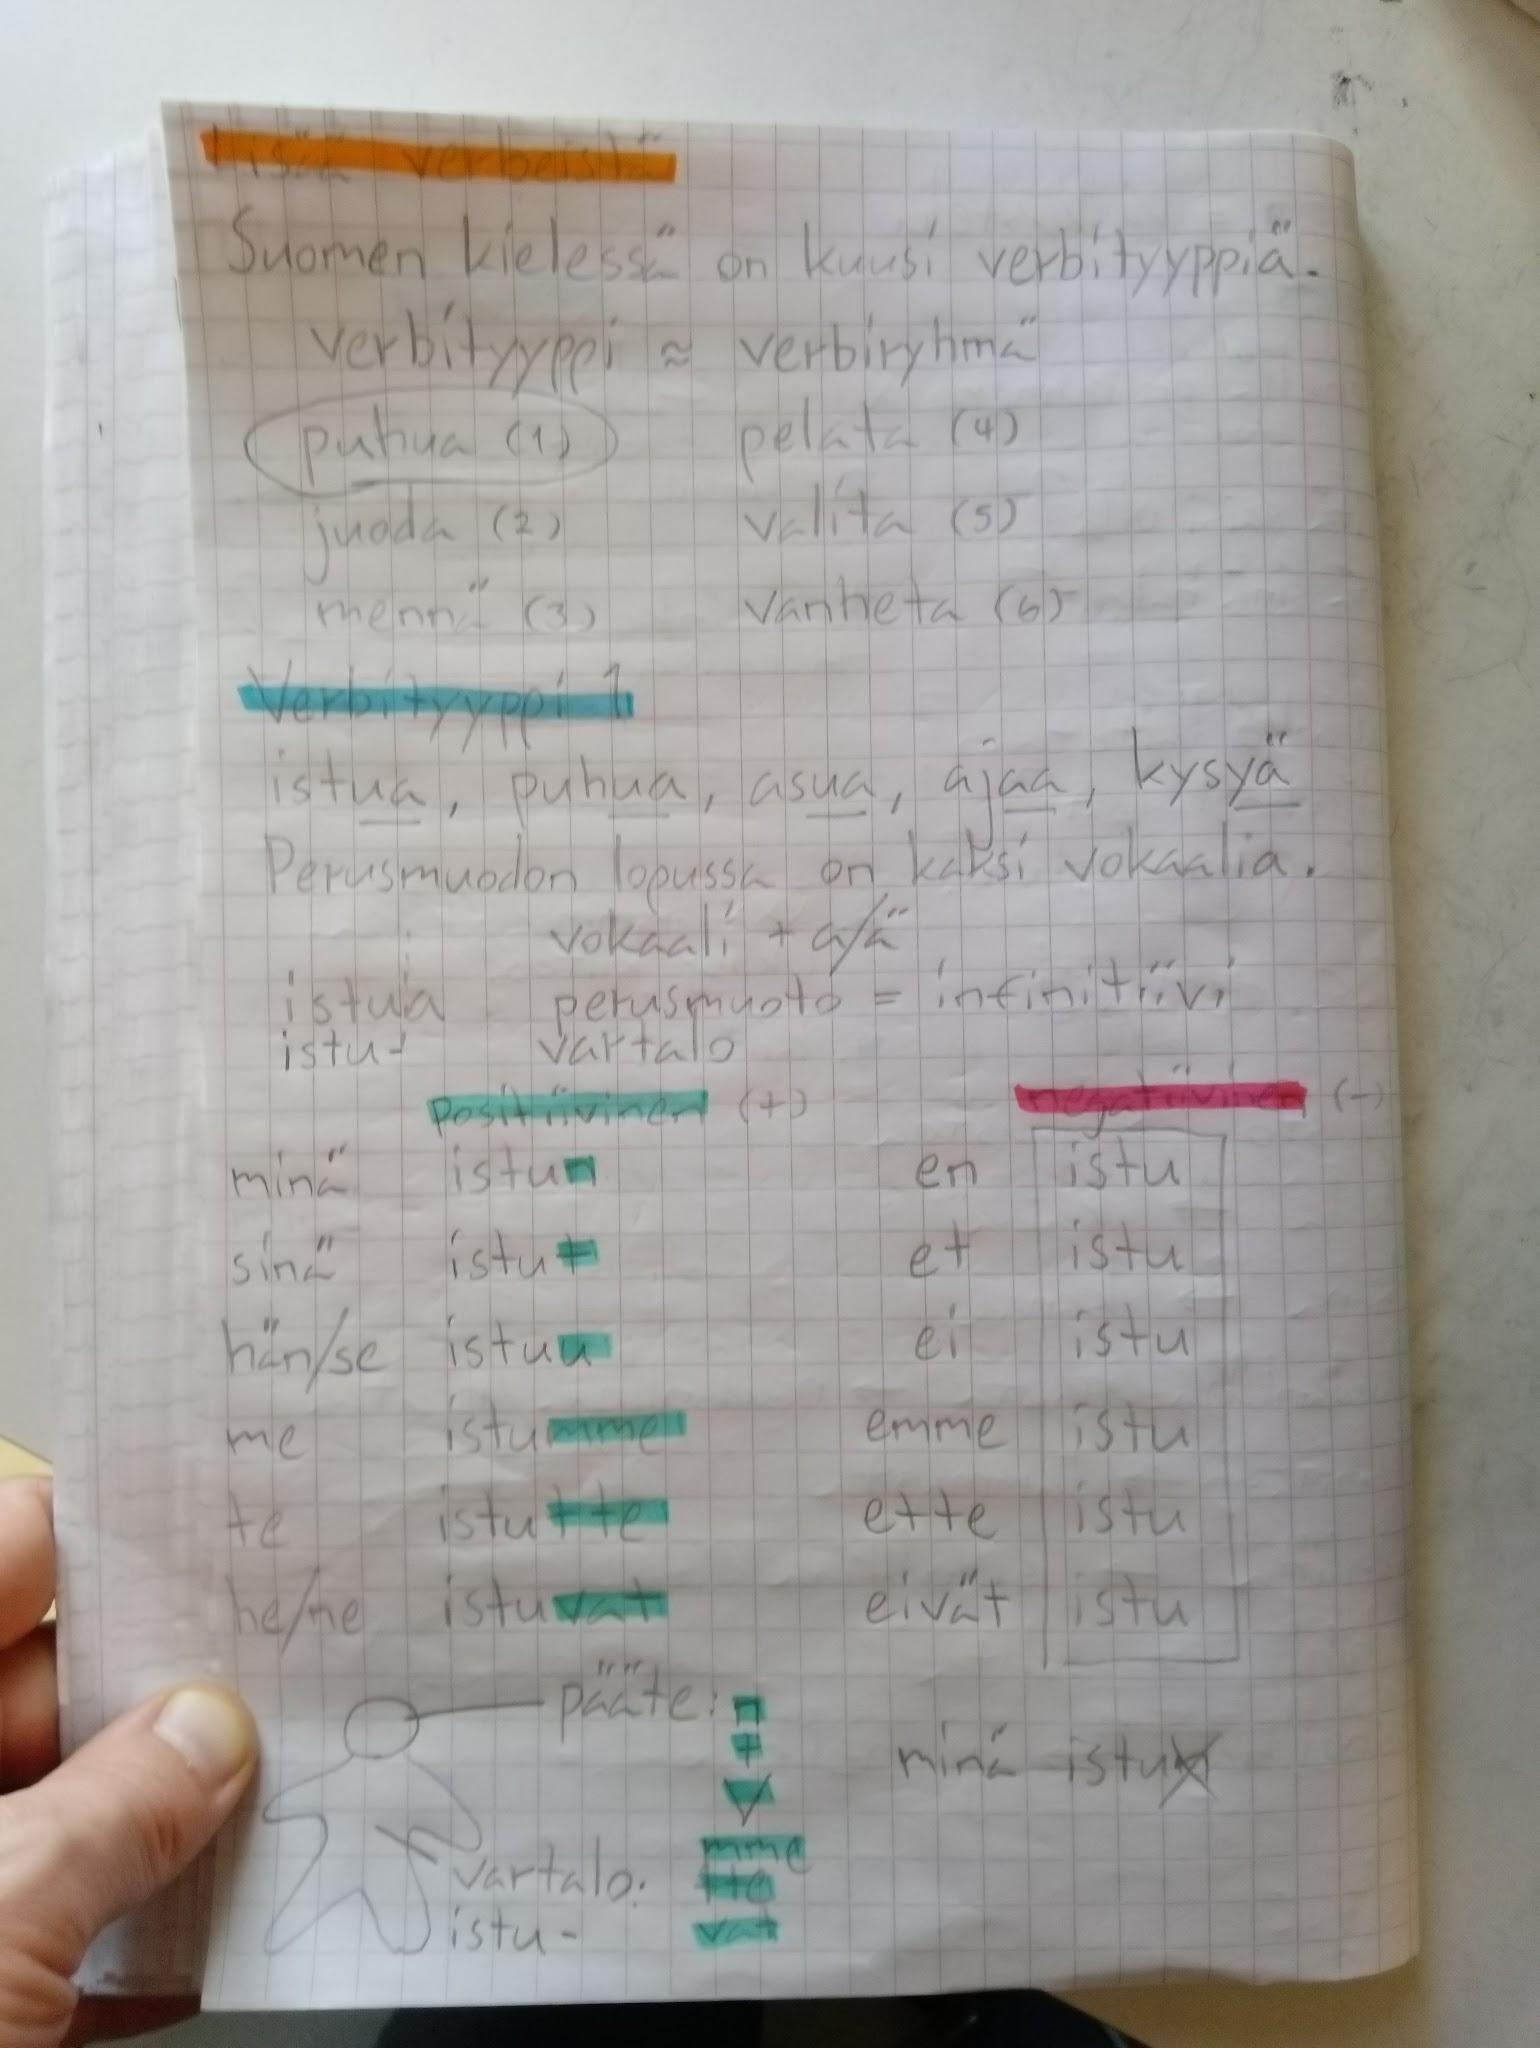 Lisää verbeistä
Suomen kielessä on kuusi verbityyppiä.
verbityyppi ≈ verbiryhmä
puhua (1) pelata (4)
juoda (2) valita (5)
mennä (3) vanheta (6)
Verbityyppi 1
istua, puhua, asua, ajaa, kysyä
Perusmuodon lopussa on kaksi vokaalia.
vokaali + a/ä
istua perusmuoto = infinitiivi
istu- vartalo
positiivinen (+) negatiivinen (-)
minä istun en istu
sinä istut et istu
hän/se istuu ei istu
me istumme emme istu
te istutte ette istu
he/ne istuvat eivät istu
pääte: n
t
V
minä istun
mme
vartalo: tte
istu- vat